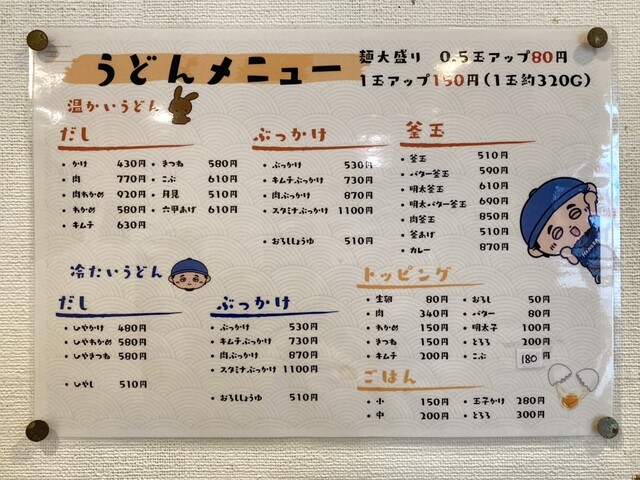 うどんメニュー
麺大盛り 0.5玉アップ80円
1玉アップ150円(1玉約320G)
温かいうどん
だし
・かけ 430円
・肉 770円
・肉わかめ 920円
・わかめ 580円
・キムチ 630円
・きつね 580円
・こぶ 610円
・月見 510円
・六甲あげ 610円
ぶっかけ
・ぶっかけ 530円
・キムチぶっかけ 730円
・肉ぶっかけ 870円
・スタミナぶっかけ 1100円
・おろししょうゆ 510円
釜玉
・釜玉 510円
・バター釜玉 590円
・明太釜玉 610円
・明太バター釜玉 690円
・肉釜玉 850円
・釜あげ 510円
・カレー 870円
冷たいうどん
だし
・ひやかけ 480円
・ひやわかめ 580円
・ひやきつね 580円
・ひやし 510円
ぶっかけ
・ぶっかけ 530円
・キムチぶっかけ 730円
・肉ぶっかけ 870円
・スタミナぶっかけ 1100円
・おろししょうゆ 510円
トッピング
・生卵 80円
・肉 340円
・わかめ 150円
・きつね 150円
・キムチ 200円
・おろし 50円
・バター 80円
・明太子 100円
・とろろ 200円
・こぶ 180円
ごはん
・小 150円
・中 200円
・玉子かけ 280円
・とろろ 300円